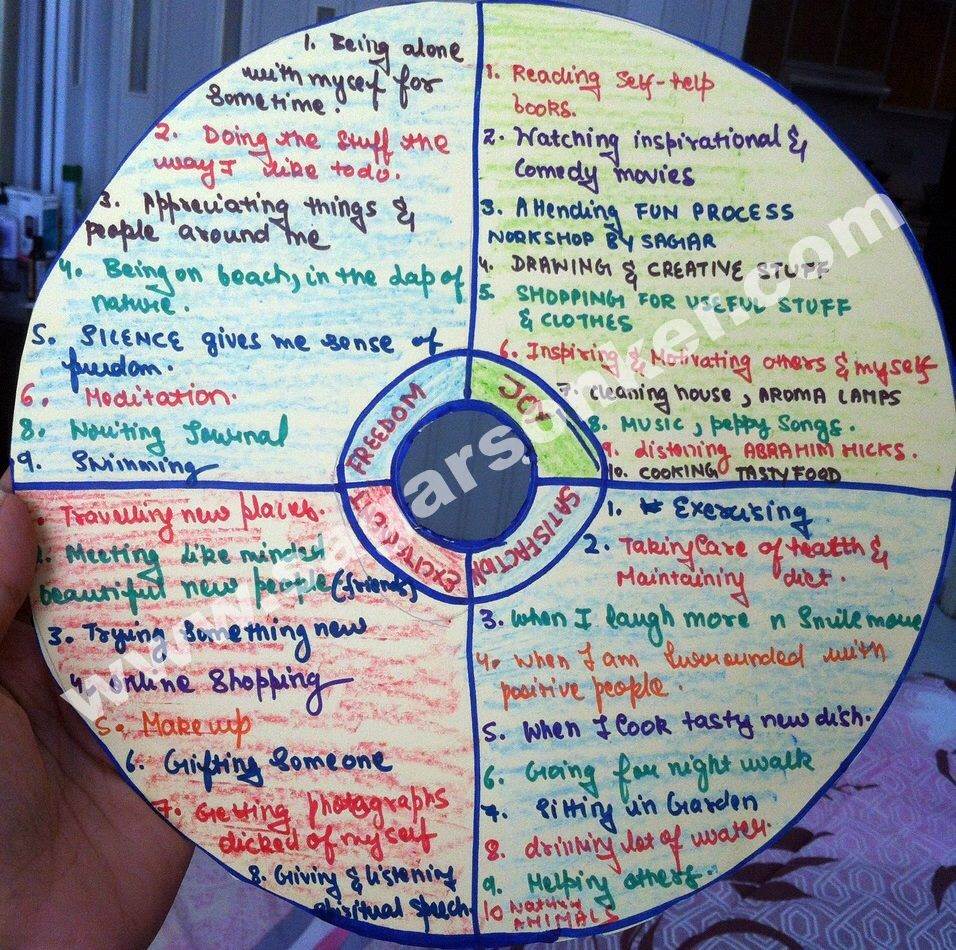 1. Being alone
with myself for
sometime.
2. Doing the stuff the
way I like to do.
3. Appreciating things &
people around me
4. Being on beach, in the lap of
nature.
5. SILENCE gives me sense of
freedom.
6. Meditation.
8. Writing Journal
9. Swimming
FREEDOM
1. Reading Self-help
books.
2. Watching inspirational &
Comedy movies
3. Attending FUN PROCESS
WORKSHOP BY SAGAR
4. DRAWING & CREATIVE STUFF
5. SHOPPING FOR USEFUL STUFF
& CLOTHES
6. Inspiring & Motivating others & myself
7. Cleaning house, AROMA LAMPS
8. MUSIC, peppy Songs.
9. listening ABRAHIM HICKS.
10. COOKING TASTY FOOD
JOY
Travelling new places.
2. Meeting like minded
beautiful new people (friends)
3. Trying Something new
4. online Shopping
5. Makeup
6. Gifting Someone
7. Getting photographs
clicked of my self
8. Giving & listening
spiritual speech.
EXCITEMENT
1. Exercising
2. Taking Care of health &
Maintaining diet.
3. when I laugh more n Smile more
4. when I am surrounded with
positive people.
5. When I Cook tasty new dish.
6. Going for night walk
7. Sitting in Garden
8. drinking lot of water.
9. Helping others.
10 Nature
ANIMALS
SATISFACTION